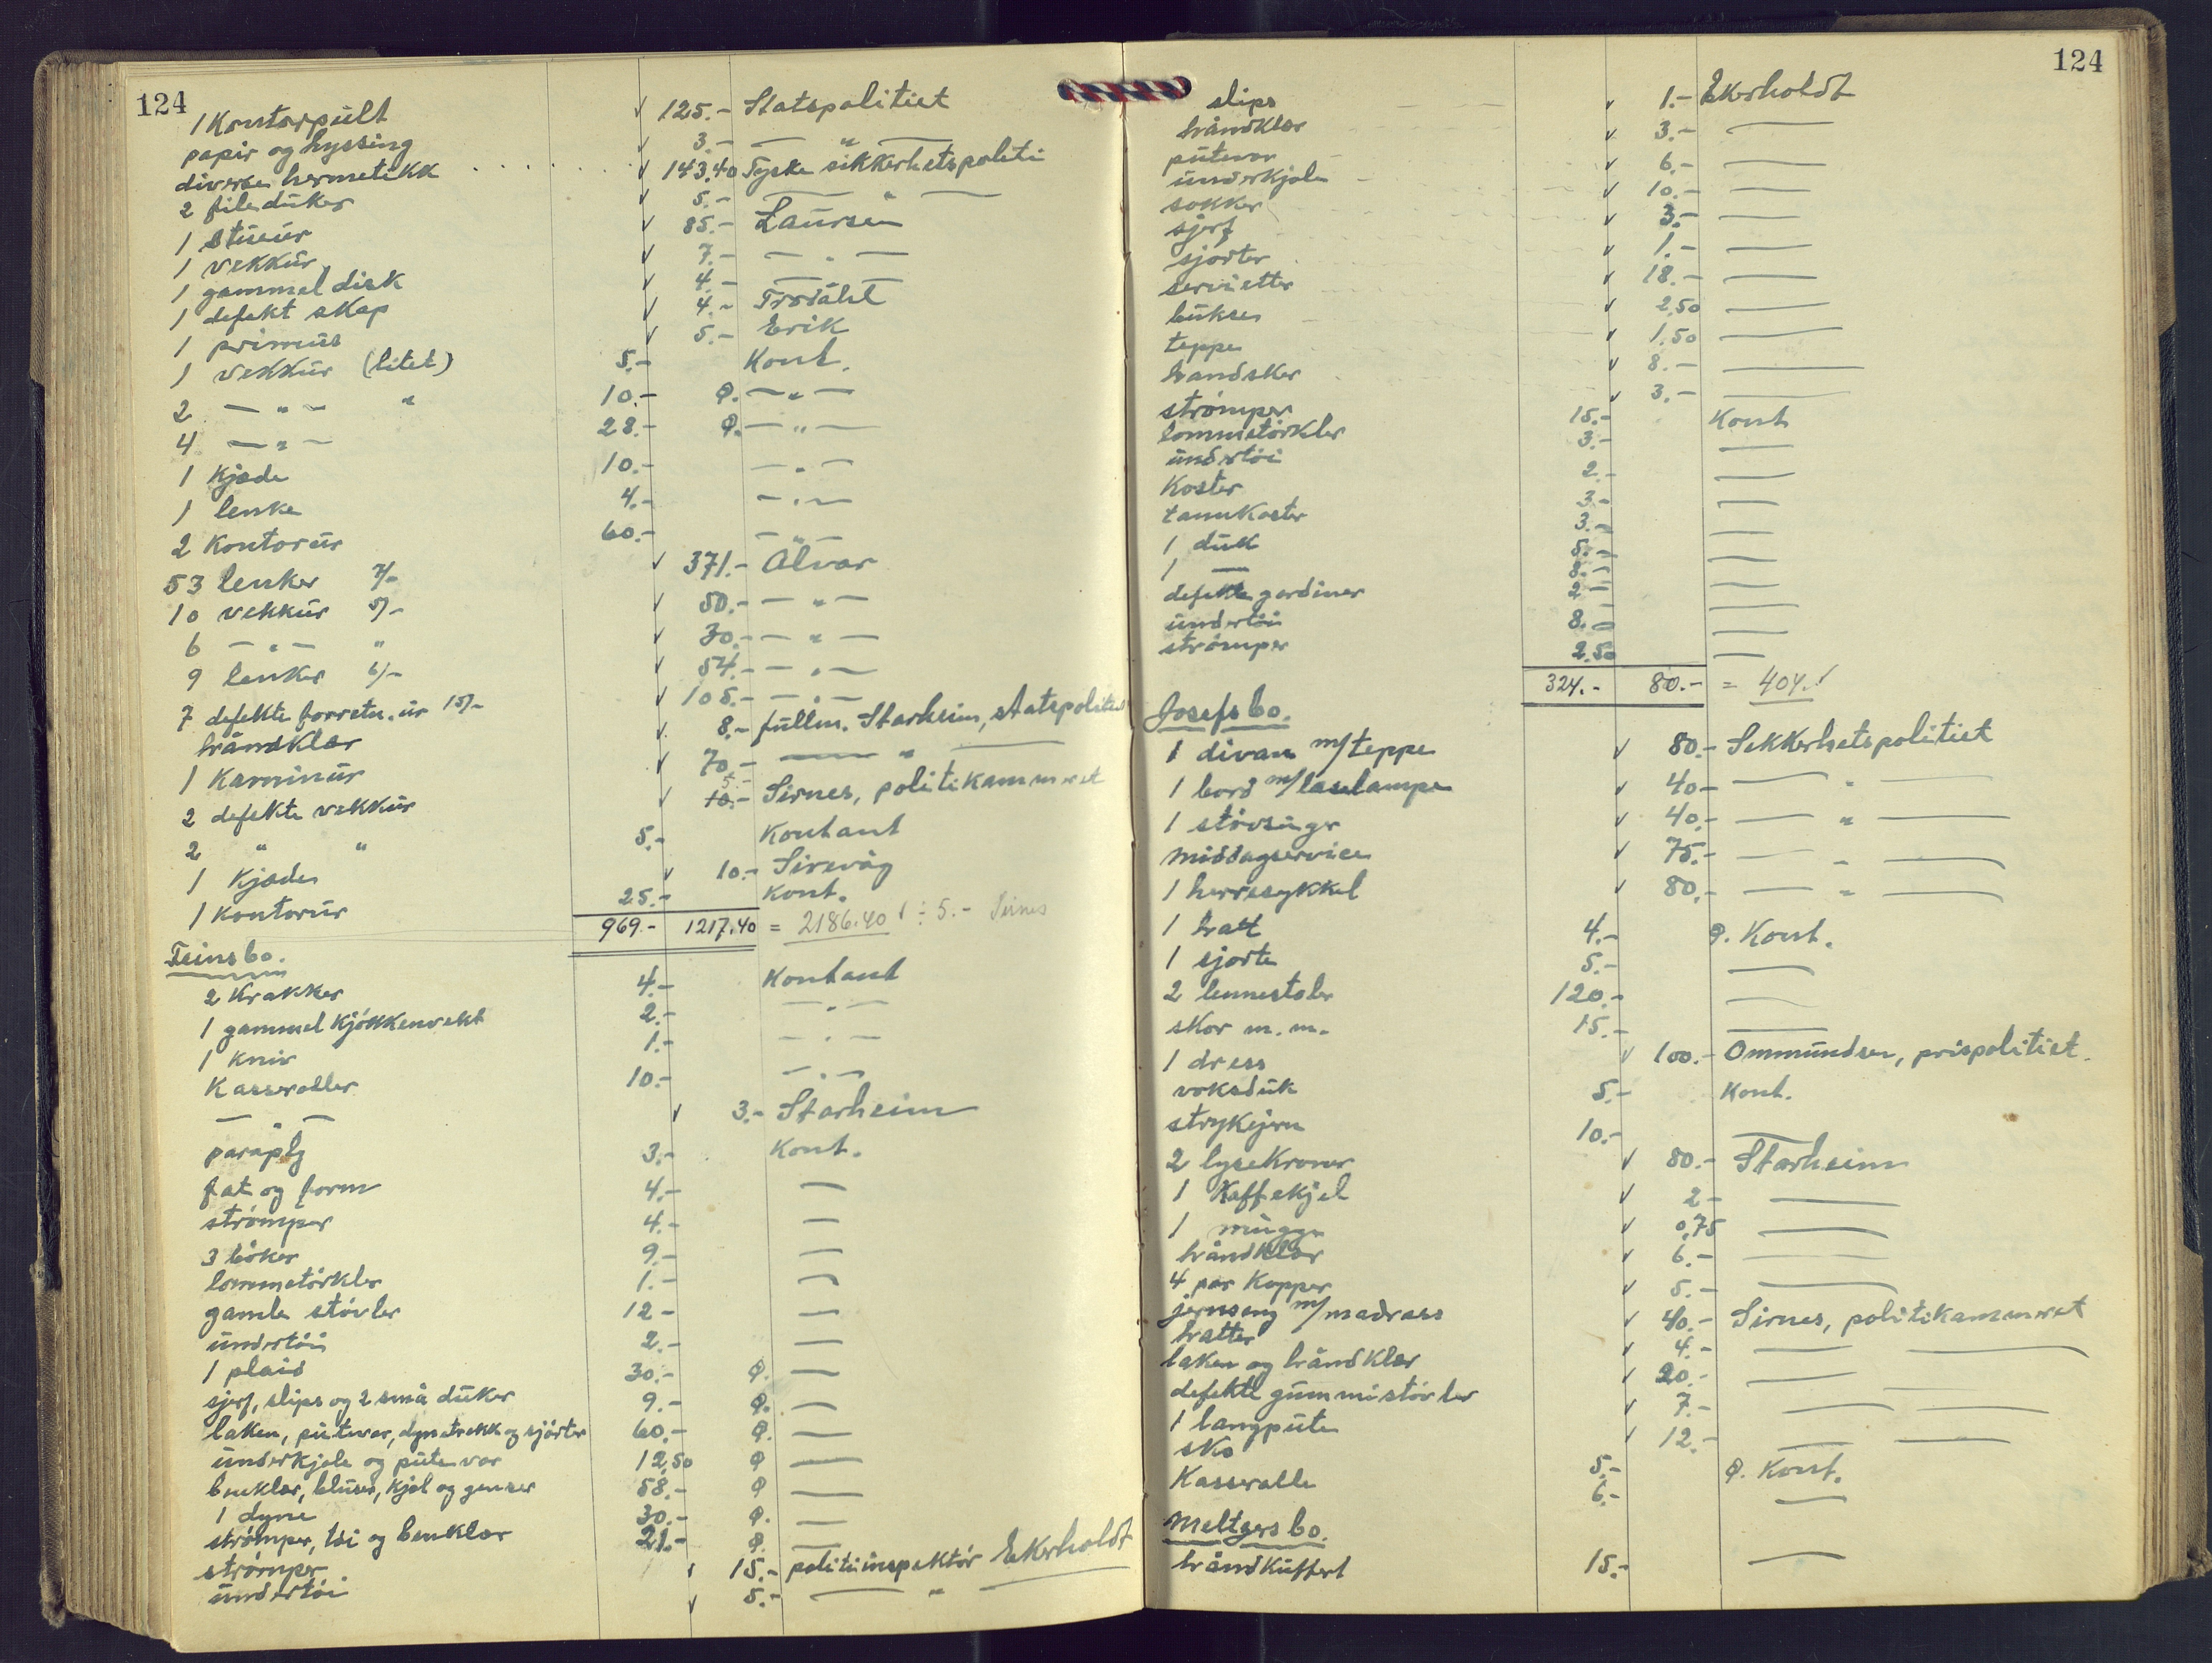 124
1 Kontorpult ✓ 125.- Statspolitiet
papir og hyssing ✓ 3.- — " —
diverse hermetikk . . . . . ✓ 143.40 Tyske sikkerhetspoliti
2 fileduker ✓ 5.- — " —
1 stueur ✓ 85.- Laursen
1 vekkur ✓ 7.- — " —
1 gammel disk ✓ 4.- —
1 defekt skap ✓ 4.- Trodahl
1 primus ✓ 5.- Erik
1 vekkur (litet) 5.- Kont.
2 — " — " 10.- — " —
4 — " — 28.- — " —
1 Kjæde 10.- — " —
1 lenke 4.- — " —
2 Kontorur 60.- — " —
53 lenker 7/- ✓ 371.- Alvar
10 vekkur 5/- ✓ 50.- — " —
6 — " — " ✓ 30.- — " —
9 lenker 6/- ✓ 54.- — " —
7 defekte forretn. ur 15/- ✓ 105.- — " —
håndklær ✓ 8.- fullm. Starheim, statspolitiet
1 Kaminur ✓ 70.- — " —
2 defekte vekkur ✓ 5.- 10.- Sirnes, politikammeret
2 " " 5.- Kontant
1 Kjæde ✓ 10.- Sirevåg
1 Kontorur 25.- Kont.
969.- 1217.40 = 2186.40 ✓ ÷ 5.- Sirnes
Feins bo.
2 Krakker 4.- Kontant
1 gammel Kjøkkenvekt 2.- — " —
1 Kniv 1.- — " —
Kasseroller 10.- — " —
— " — ✓ 3.- Starheim
paraply 3.- Kont.
fat og form 4.- —
strømper 4.- —
3 bøker 9.- —
lommetørkler 1.- —
gamle støvler 12.- —
undertøi 2.- —
1 plaid 30.- —
sjerf, slips og 2 små duker 9.- —
laken, putevar, dynetrekk og sjorter 60.- —
underkjole og putevar 12,50 —
benklær, bluser, kjol og genser 58.- —
1 dyne 30.- —
strømper, tøi og benklær 21.- —
strømper ✓ 15.- politiinspektør Ekerholdt
undertøi ✓ 5.- — " —
124
slips ✓ 1.- Ekerholdt
håndklær ✓ 3.- —
putevar ✓ 6.- —
underkjole ✓ 10.- —
sokker ✓ 3.- —
sjerf ✓ 1.- —
sjorter ✓ 18.- —
servietter ✓ 2,50 —
bukser ✓ 1,50 —
teppe ✓ 8.- —
handsker ✓ 3.- —
strømper 15.- Kont
lommetørkler 3.- —
undertøi 2.- —
Koster 3.- —
tannkoster 3.- —
1 duk 5.- —
1 — 8.- —
defekte gardiner 2.- —
undertøi 8.- —
strømper 2.50 —
324.- 80.- = 404.✓
Josefs bo.
1 divan m/teppe ✓ 80.- Sikkerhetspolitiet
1 bord m/laselampe ✓ 40.- — " —
1 støvsuger ✓ 40.- — " —
middagservice ✓ 75.- — " —
1 herresykkel ✓ 80.- — " —
1 hatt 4.- Kont.
1 sjorte 5.- —
2 lennestoler 120.- —
skor m.m. 15.- —
1 dress ✓ 100.- Ommundsen, prispolitiet.
voksduk 5.- Kont.
strykejern 10.- —
2 lysekroner ✓ 80.- Starheim
1 Kaffekjel ✓ 2.- —
1 mugge ✓ 0,75 —
håndklær ✓ 6.- —
4 par Kopper ✓ 5.- —
jernseng m/madrass ✓ 40.- Sirnes, politikammeret
hatter ✓ 4.- —
laken og håndklær ✓ 20.- —
defekte gummistøvler ✓ 7.- —
1 langpute ✓ 12.- —
sko 5.- Kont.
Kasserolle 6.- —
Meltzers bo.
håndkuffert 15.- —